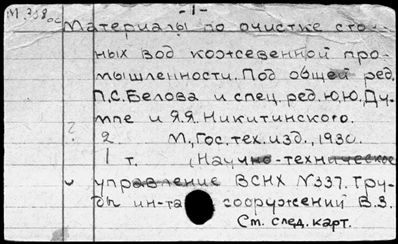 - 1 -
Материалы по очистке сто-
ных вод кожевенной про-
мышленности. Под общей ред.
П.С. Белова и спец. ред. Ю.Ю. Ду-
мпе и Я.Я. Никитинского.
2. М., Гос. тех. изд., 1930.
1 т. (Научно-техническое
управление ВСНХ №337. Тру-
ды ин-та сооружений В.З.
См. след. карт.